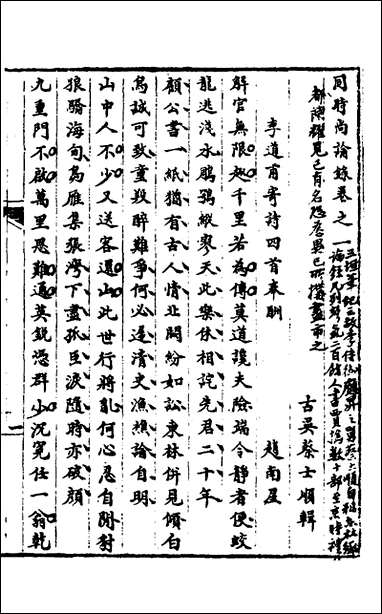 同時尚論錄卷之一
古吳蔡士順輯
李道甫寄詩四首奉酬
趙南星
解官無限趣千里若為傳莫道謖夫險端令靜者便蛟
龍逃淺水鵬鷃縱寥天此樂休相詫先君二十年
顧公書一紙猶有古人情北闕紛如訟東林併見傾白
馬誠可致童羖醉難爭何必逢清史漁樵論自明
山中人不少又送客還山此世行將亂何心忍自閒豺
狼驕海甸鳥雁集張灣下盡孤臣淚隨時亦破顏
九重門不啟萬里恩難通英銳憑群少沉冤任一翁乾